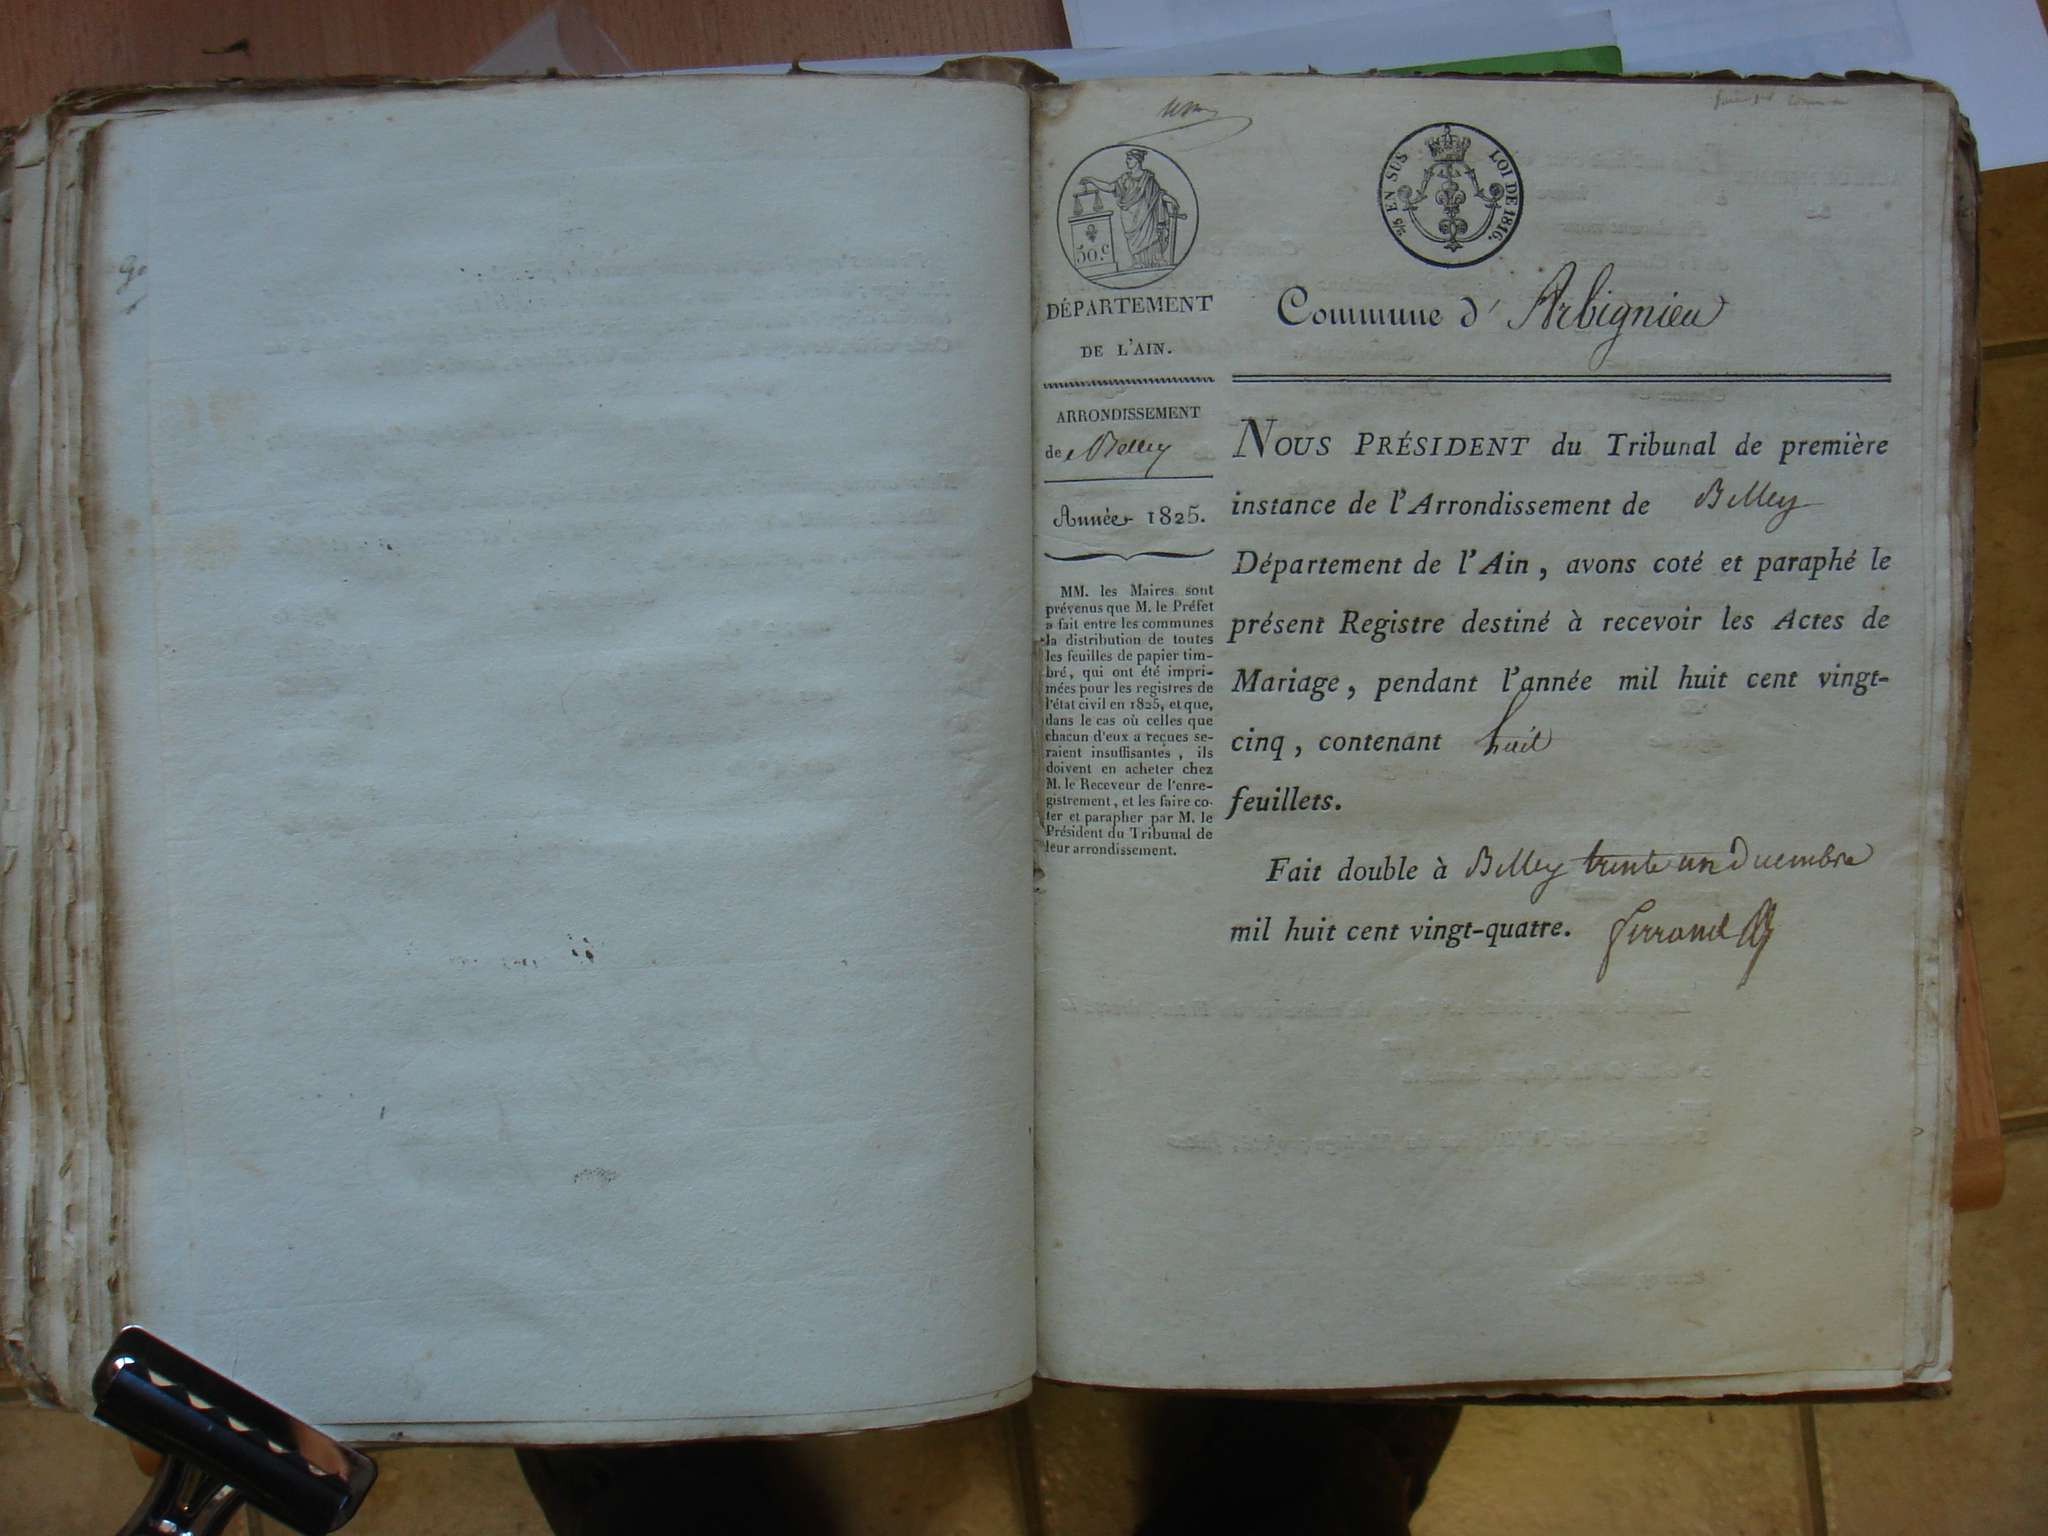 2/5 EN SUS LOI DE 1816.
50.c
DÉPARTEMENT
DE L'AIN.
ARRONDISSEMENT
de Belley
Année 1825.
MM. les Maires sont
prévenus que M. le Préfet
a fait entre les communes
la distribution de toutes
les feuilles de papier tim-
bré, qui ont été impri-
mées pour les registres de
l'état civil en 1825, et que,
dans le cas où celles que
chacun d'eux a reçues se-
raient insuffisantes, ils
doivent en acheter chez
M. le Receveur de l'enre-
gistrement, et les faire co-
ter et parapher par M. le
Président du Tribunal de
leur arrondissement.
Commune d'Arbignieu
NOUS PRÉSIDENT du Tribunal de première
instance de l'Arrondissement de Belley
Département de l'Ain, avons coté et paraphé le
présent Registre destiné à recevoir les Actes de
Mariage, pendant l'année mil huit cent vingt-
cinq, contenant huit
feuillets.
Fait double à Belley trente un Decembre
mil huit cent vingt-quatre. Ferrand